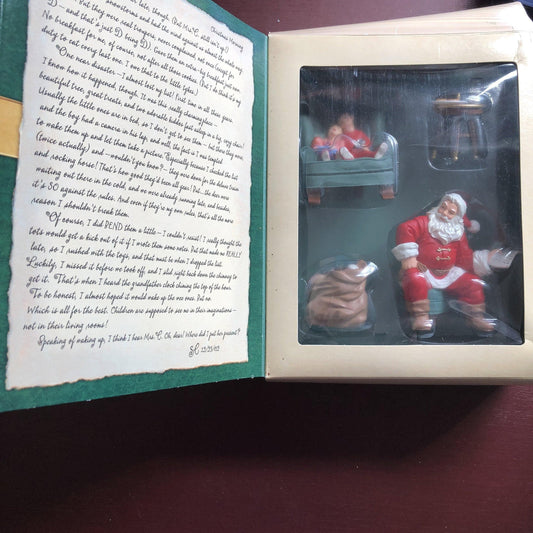 Christmas Morning
late, though (But Mrs. C. still isn't up!)
snowstorms and had the wind against us about the whole way
D— But they were real troopers, never complained, not once (except for
D— and that's just D being D). Gave them an extra-big breakfast just now.
No breakfast for me, of course, not after all those cookies. (But I do think it's my
duty to eat every last one. I owe that to the little tykes.)
One near disaster—I almost lost my list! First time in all these years.
I know how it happened, though. It was this really charming place—
beautiful tree, great treats, and two adorable kiddos fast asleep in a big comfy chair!
Usually the little ones are in bed, so I don't get to see them— but there they were,
and the boy had a camera in his lap, and well, the fact is I was tempted
to make them up and let them take a picture. Especially because I checked the list
(twice actually) and —wouldn't you know?— they were down for the deluxe train
and rocking horse! That's how good they'd been all year! But...the deer were
waiting out there in the cold, and we were already running late, and besides,
it's SO against the rules. And even if they're my own rules, that's all the more
reason I shouldn't break them.
Of course, I did BEND them a little—I couldn't resist! I really thought the
tots would get a kick out of it if I wrote them some notes. But that made me REALLY
late, so I rushed with the toys, and that must be when I dropped the list.
Luckily, I missed it before we took off, and I slid right back down the chimney to
get it. That's when I heard the grandfather clock chiming the top of the hour.
To be honest, I almost hoped it would wake up the wee ones. But no.
Which is all for the best. Children are supposed to see me in their imaginations—
not in their living rooms!
Speaking of waking up, I think I hear Mrs. C. Oh, dear! Where did I put her present?
SC 12/25/02